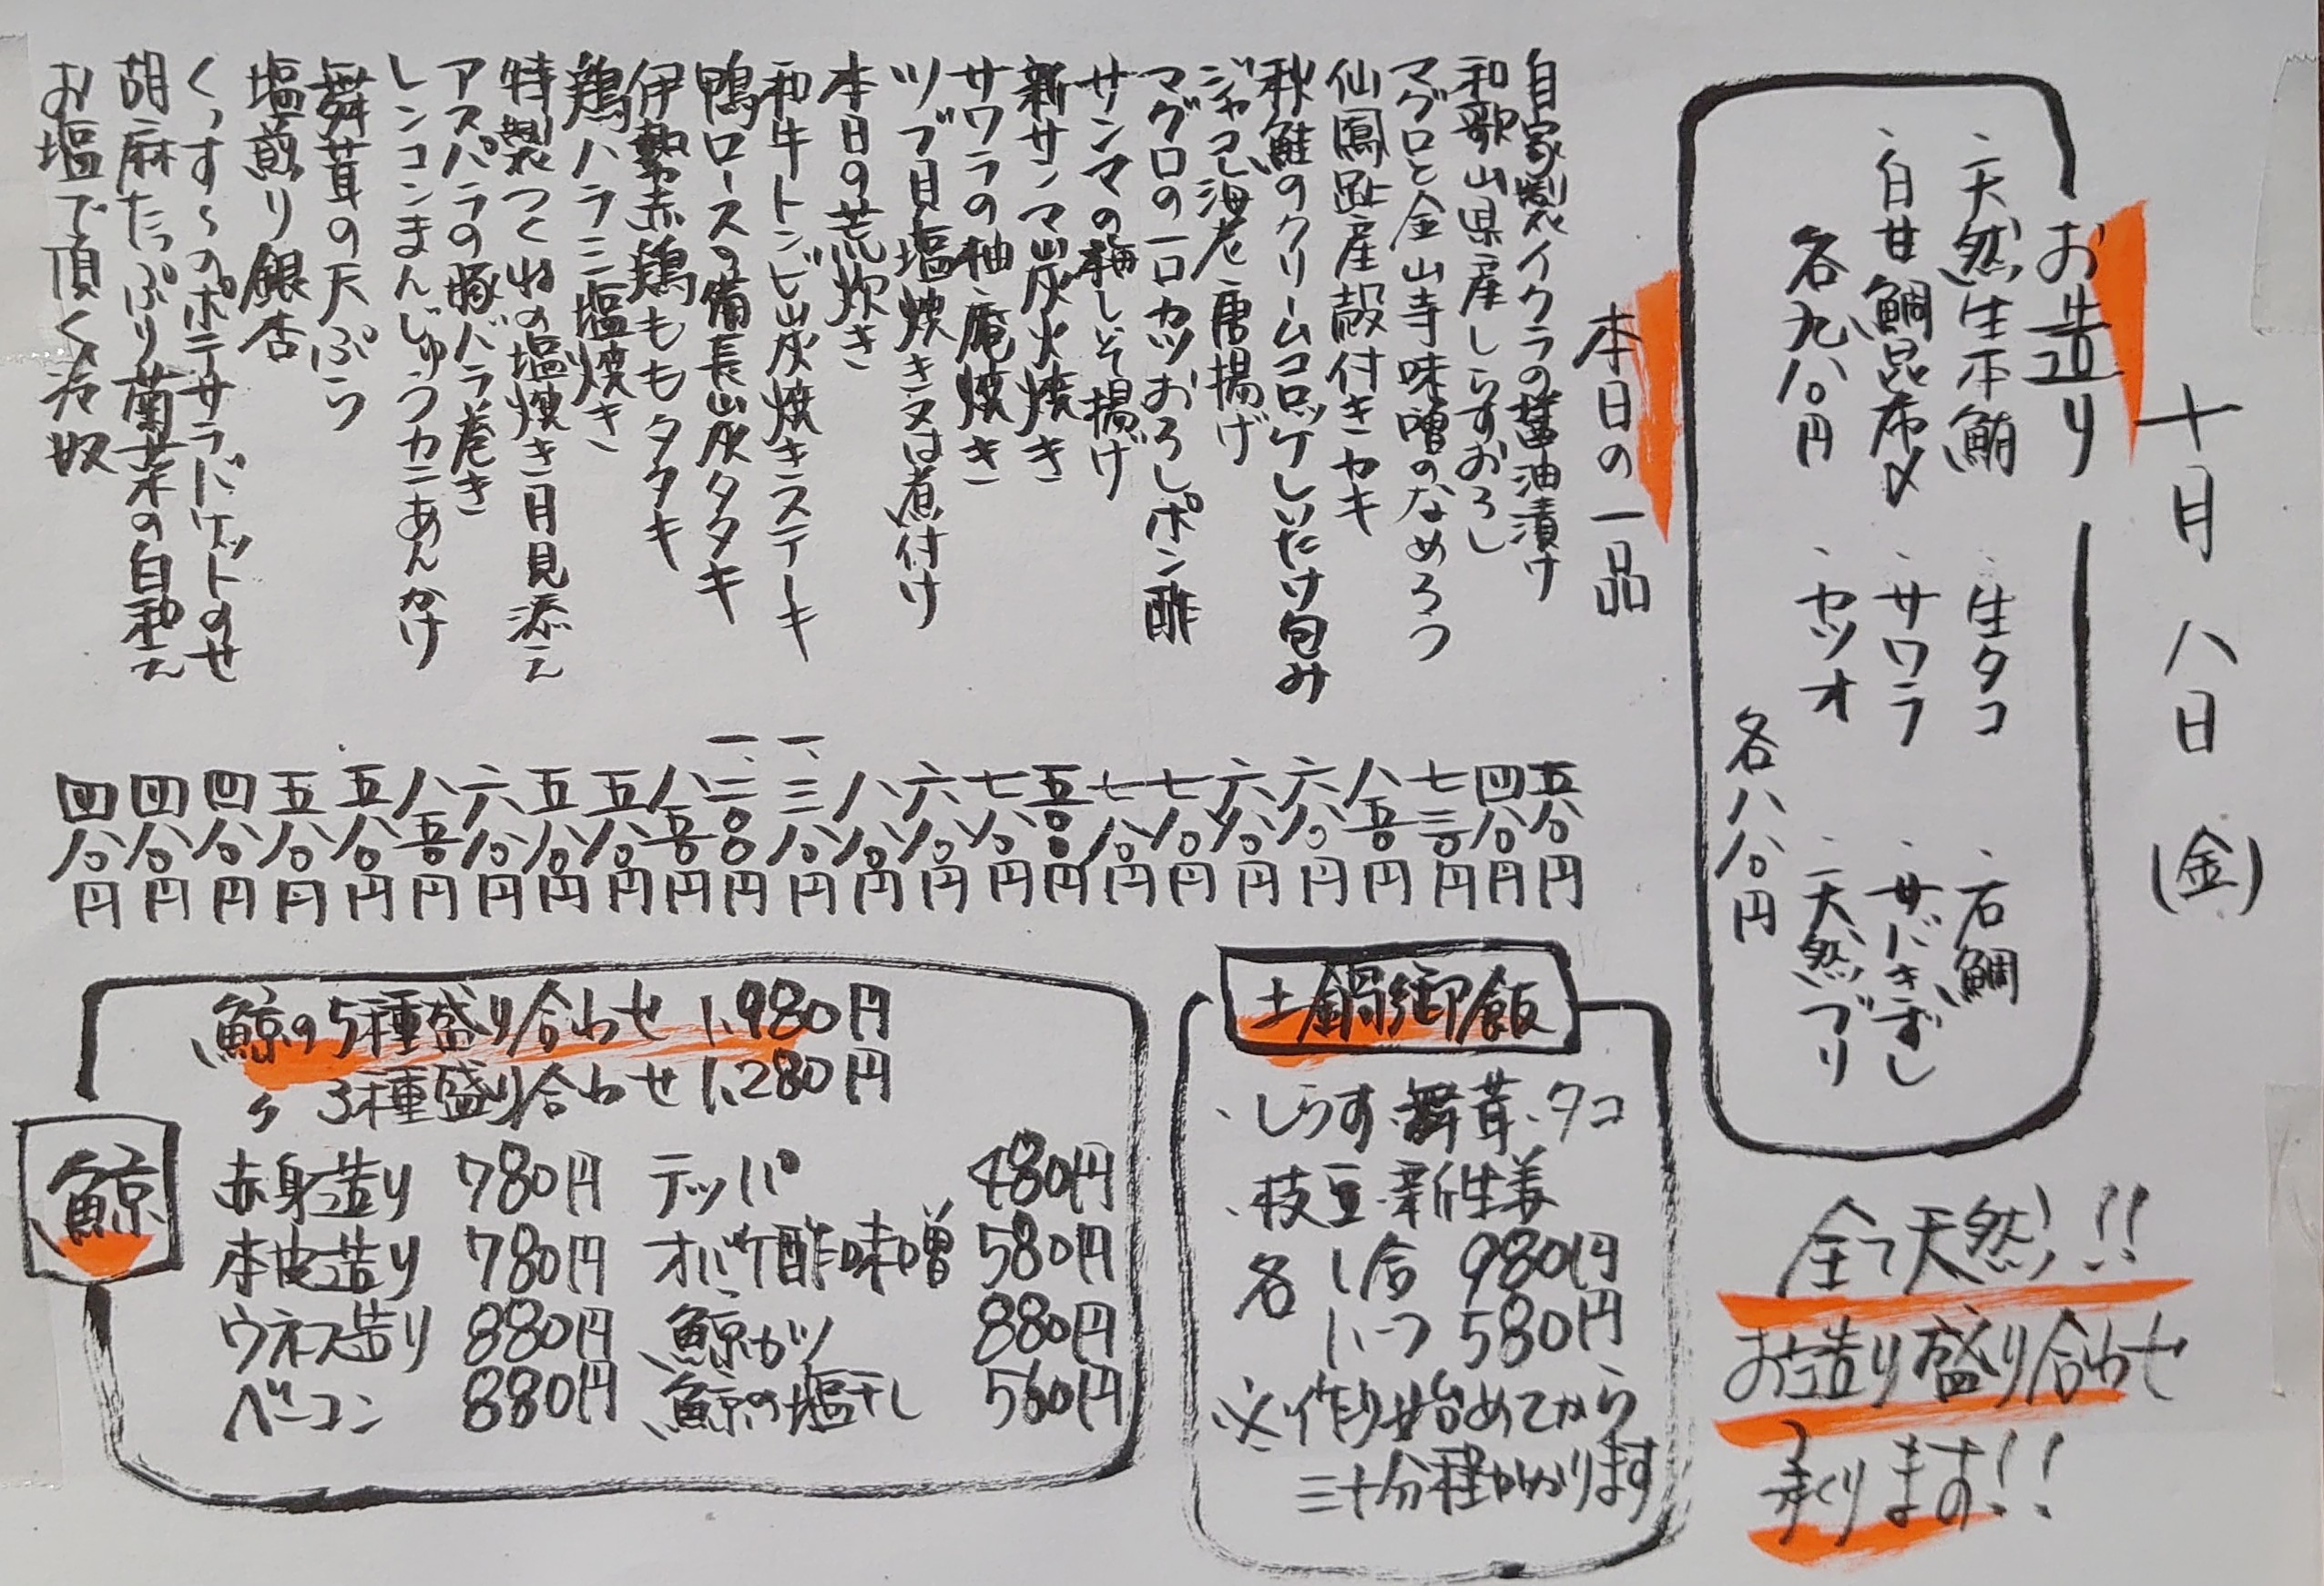 十月八日(金)
お造り
・天然生本鮪
・白甘鯛昆布〆
各九八〇円
・生タコ
・サワラ
・カツオ
・石鯛
・サバきずし
・天然ブリ
各八八〇円
全て天然!!
お造り盛り合わせ
承ります!!
本日の一品
自家製イクラの醤油漬け 五八〇円
和歌山県産しらすおろし 四八〇円
マグロと金山寺味噌のなめろう 七三〇円
仙鳳趾産殻付きカキ 八五〇円
秋鮭のクリームコロッケしいたけ包み 六八〇円
ジャコ海老唐揚げ 六八〇円
マグロの一口カツおろしポン酢 七八〇円
サンマの梅しそ揚げ 七八〇円
新サンマ炭火焼き 五〇〇円
サワラの柚庵焼き 七八〇円
ツブ貝塩焼き又は煮付け 六八〇円
本日の荒炊き 八八〇円
和牛トンビ炭焼きステーキ 一、三八〇円
鴨ロースの備長炭タタキ 一、二〇〇円
伊勢赤鶏ももタタキ 八五〇円
鶏ハラミ塩焼き 五八〇円
特製つくねの塩焼き月見添え 五八〇円
アスパラの豚バラ巻き 六八〇円
レンコンまんじゅうカニあんかけ 八五〇円
舞茸の天ぷら 五八〇円
塩煎り銀杏 五八〇円
くっす〜のポテサラバゲットのせ 四八〇円
胡麻たっぷり菊菜の白和え 四八〇円
お塩で頂く冷奴 四八〇円
土鍋御飯
・しらす・舞茸・タコ
・枝豆・新生姜
各 1合 980円
1/2 580円
※作り始めてから
三十分程かかります
鯨
鯨の5種盛り合わせ 1,980円
〃 3種盛り合わせ 1,280円
赤身造り 780円 テッパ 480円
本皮造り 780円 オバケ酢味噌 580円
ウネス造り 880円 鯨カツ 880円
ベーコン 880円 鯨の塩干し 560円